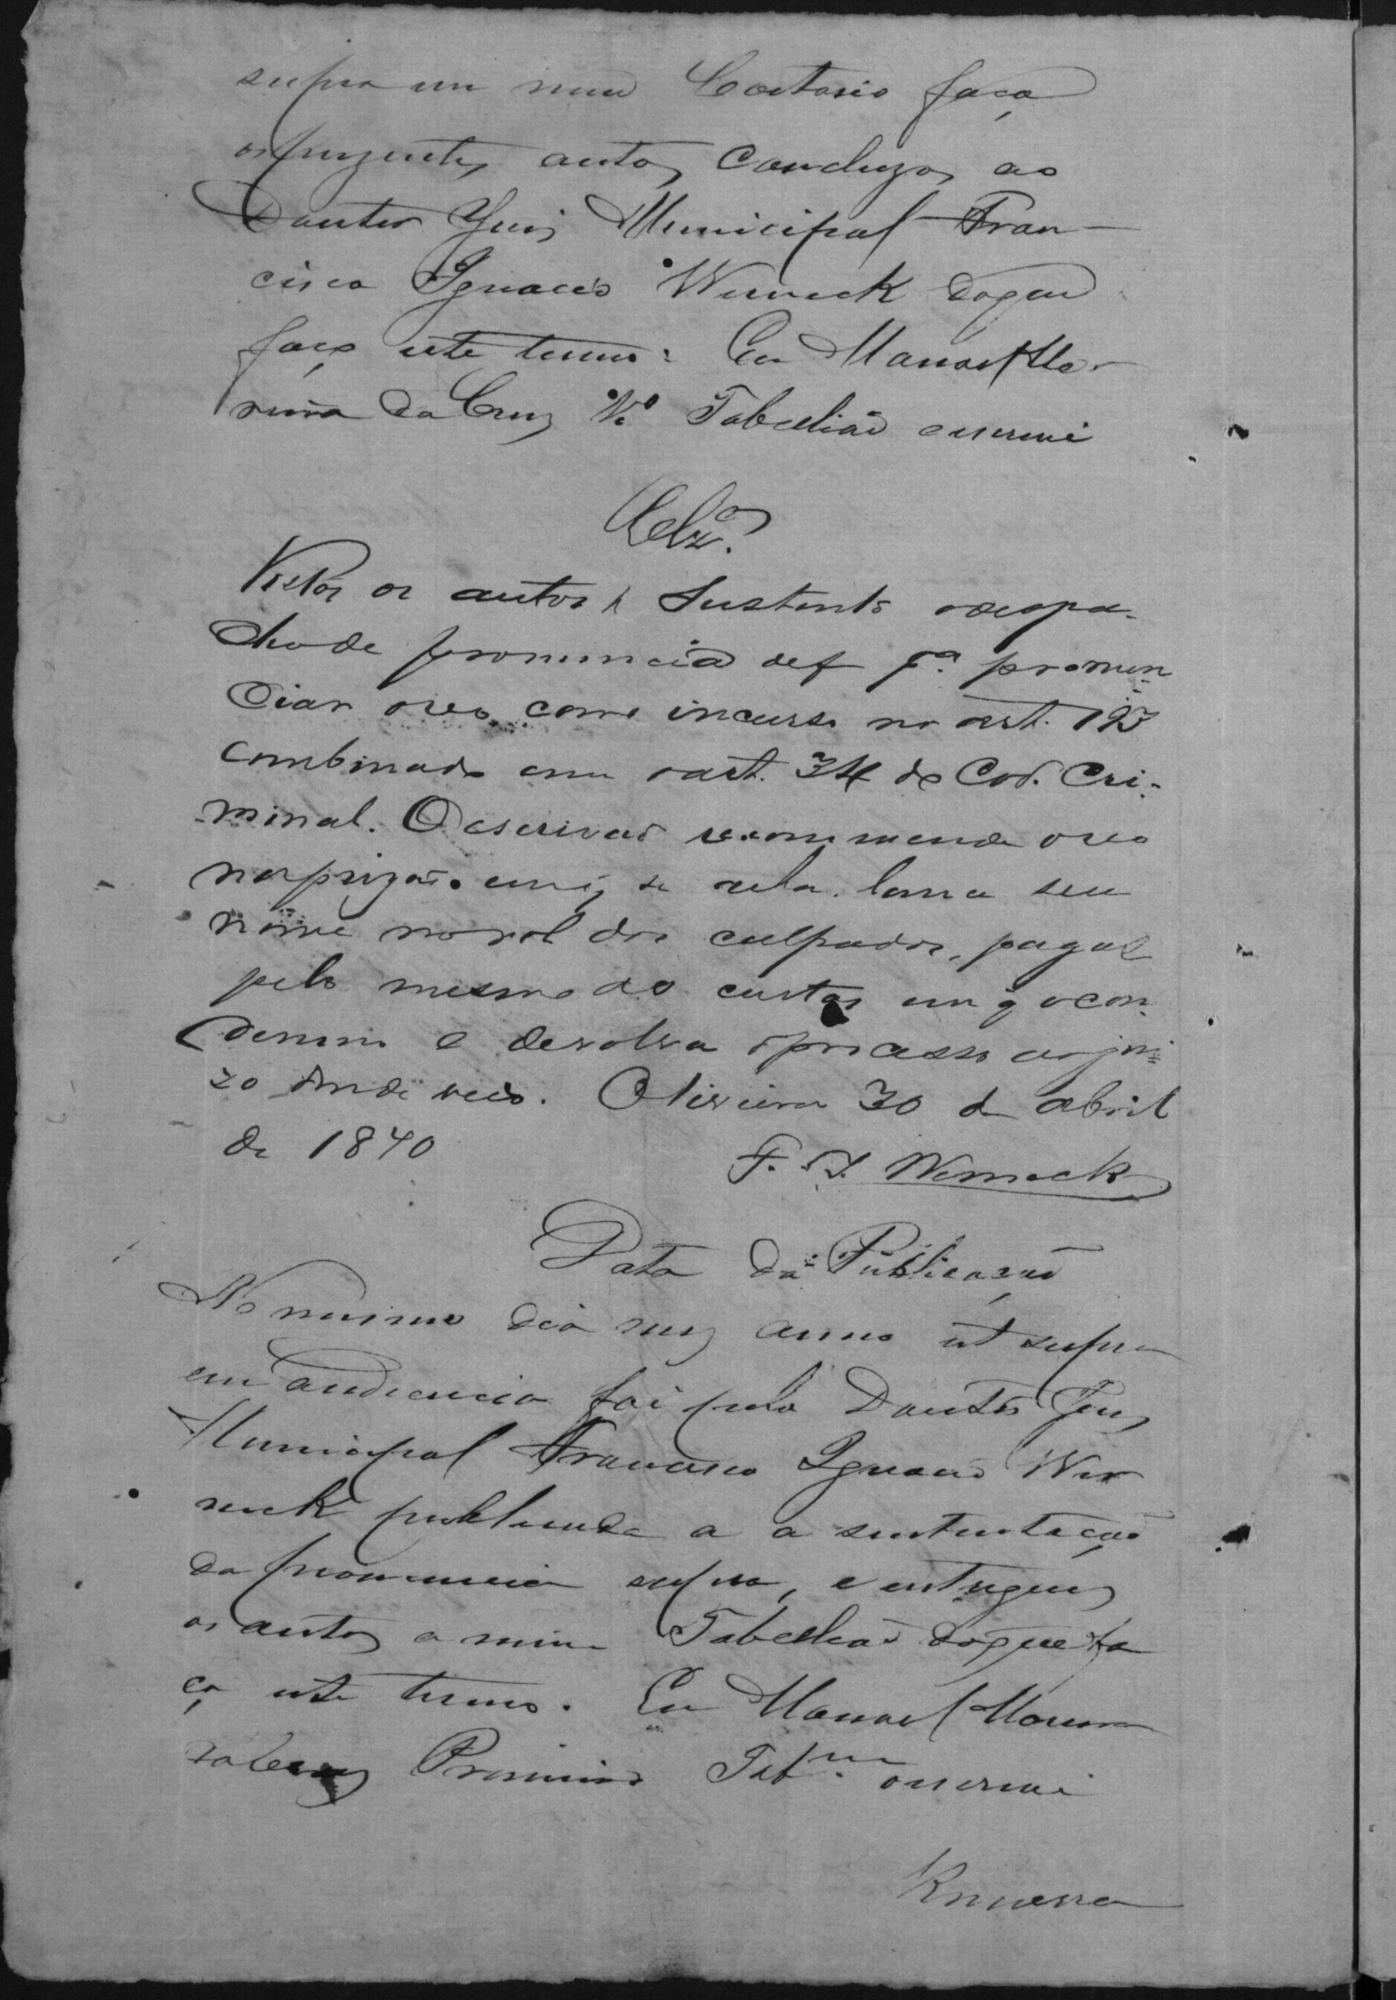 supra em meu Cartorio faço
os prezentes autos concluzos ao
Doutor Juis Municipal Fran-
cisco Ignacio Werneck doque
faço este termo: Eu Manoel Mo-
reira da Cruz 1º Tabelião escrevi
Clzos.
Vistos os autos, Sustento odespa-
cho de pronuncia def pª pronun-
ciar oreo como incurso no art. 193
combinado com oart. 34 do Cod. Cri-
minal. O escrivão recommende oreo
naprizão emq se acha. lance seu
nome norol dos culpados, pagas
pelo mesmo as custas em q ocon-
demno e devolva oprocesso aojui-
zo donde veio. Oliveira 30 de abril
de 1870
F. I. Werneck
Data da Publicação
No mesmo dia mez anno ut supra
em audiencia foi pelo Doutor Juis
Municipal Francisco Ignacio Wer
neck publicada a a sustentação
da pronuncia supra, e entregues
os autos a mim Tabellião doque fa
ço este termo. Eu Manoel Moreira
daCruz Primeiro Tabam oescrevi
Remessa